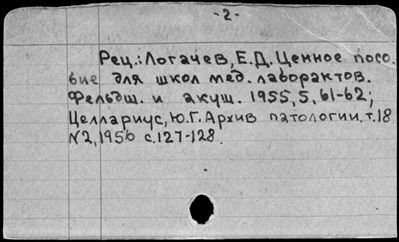 -2-
Рец.: Логачев, Е.Д. Ценное посо-
бие для школ мед. лаборактов.
Фельдш. и акуш. 1955, 5, 61-62;
Целлариус, Ю.Г. Архив патологии, т.18
N2, 1956 с.127-128.